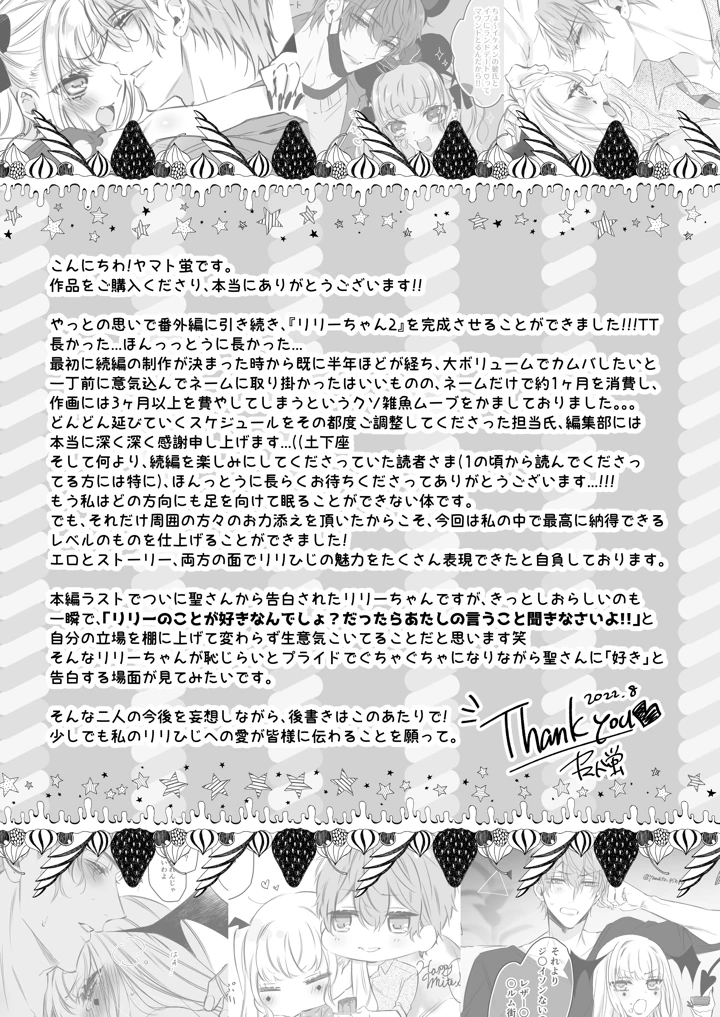 ちょーイケメンの彼氏と
イブにランドデートゥ？って
マウントとるんだから!!
こんにちわ!ヤマト蛍です。
作品をご購入くださり、本当にありがとうございます!!
やっとの思いで番外編に引き続き、『リリーちゃん2』を完成させることができました!!!TT
長かった…ほんっっとうに長かった…
最初に続編の制作が決まった時から既に半年ほどが経ち、大ボリュームでカムバしたいと
一丁前に意気込んでネームに取り掛かったはいいものの、ネームだけで約1ヶ月を消費し、
作画には3ヶ月以上を費やしてしまうというクソ雑魚ムーブをかましておりました。。。
どんどん延びていくスケジュールをその都度ご調整してくださった担当氏、編集部には
本当に深く深く感謝申し上げます…((土下座
そして何より、続編を楽しみにしてくださっていた読者さま(1の頃から読んでくださっ
てる方には特に)、ほんっとうに長らくお待ちくださってありがとうございます…!!!
もう私はどの方向にも足を向けて眠ることができない体です。
でも、それだけ周囲の方々のお力添えを頂いたからこそ、今回は私の中で最高に納得できる
レベルのものを仕上げることができました!
エロとストーリー、両方の面でリリひじの魅力をたくさん表現できたと自負しております。
本編ラストでついに聖さんから告白されたリリーちゃんですが、きっとしおらしいのも
一瞬で、「リリーのことが好きなんでしょ?だったらあたしの言うこと聞きなさいよ!!」と
自分の立場を棚に上げて変わらず生意気こいてることだと思います笑
そんなリリーちゃんが恥じらいとプライドでぐちゃぐちゃになりながら聖さんに「好き」と
告白する場面が見てみたいです。
そんな二人の今後を妄想しながら、後書きはこのあたりで!
少しでも私のリリひじへの愛が皆様に伝わることを願って。
2022.8
Thank you
ヤマト蛍
れんじゃ
いわよ
はぁ
Happy
それより
ジ〇イソンない
レザー〇
〇ルム街